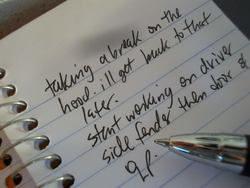 taking a break on the
hood. i'll get back to that
later.
start working on driver
side fender then door &
qp.